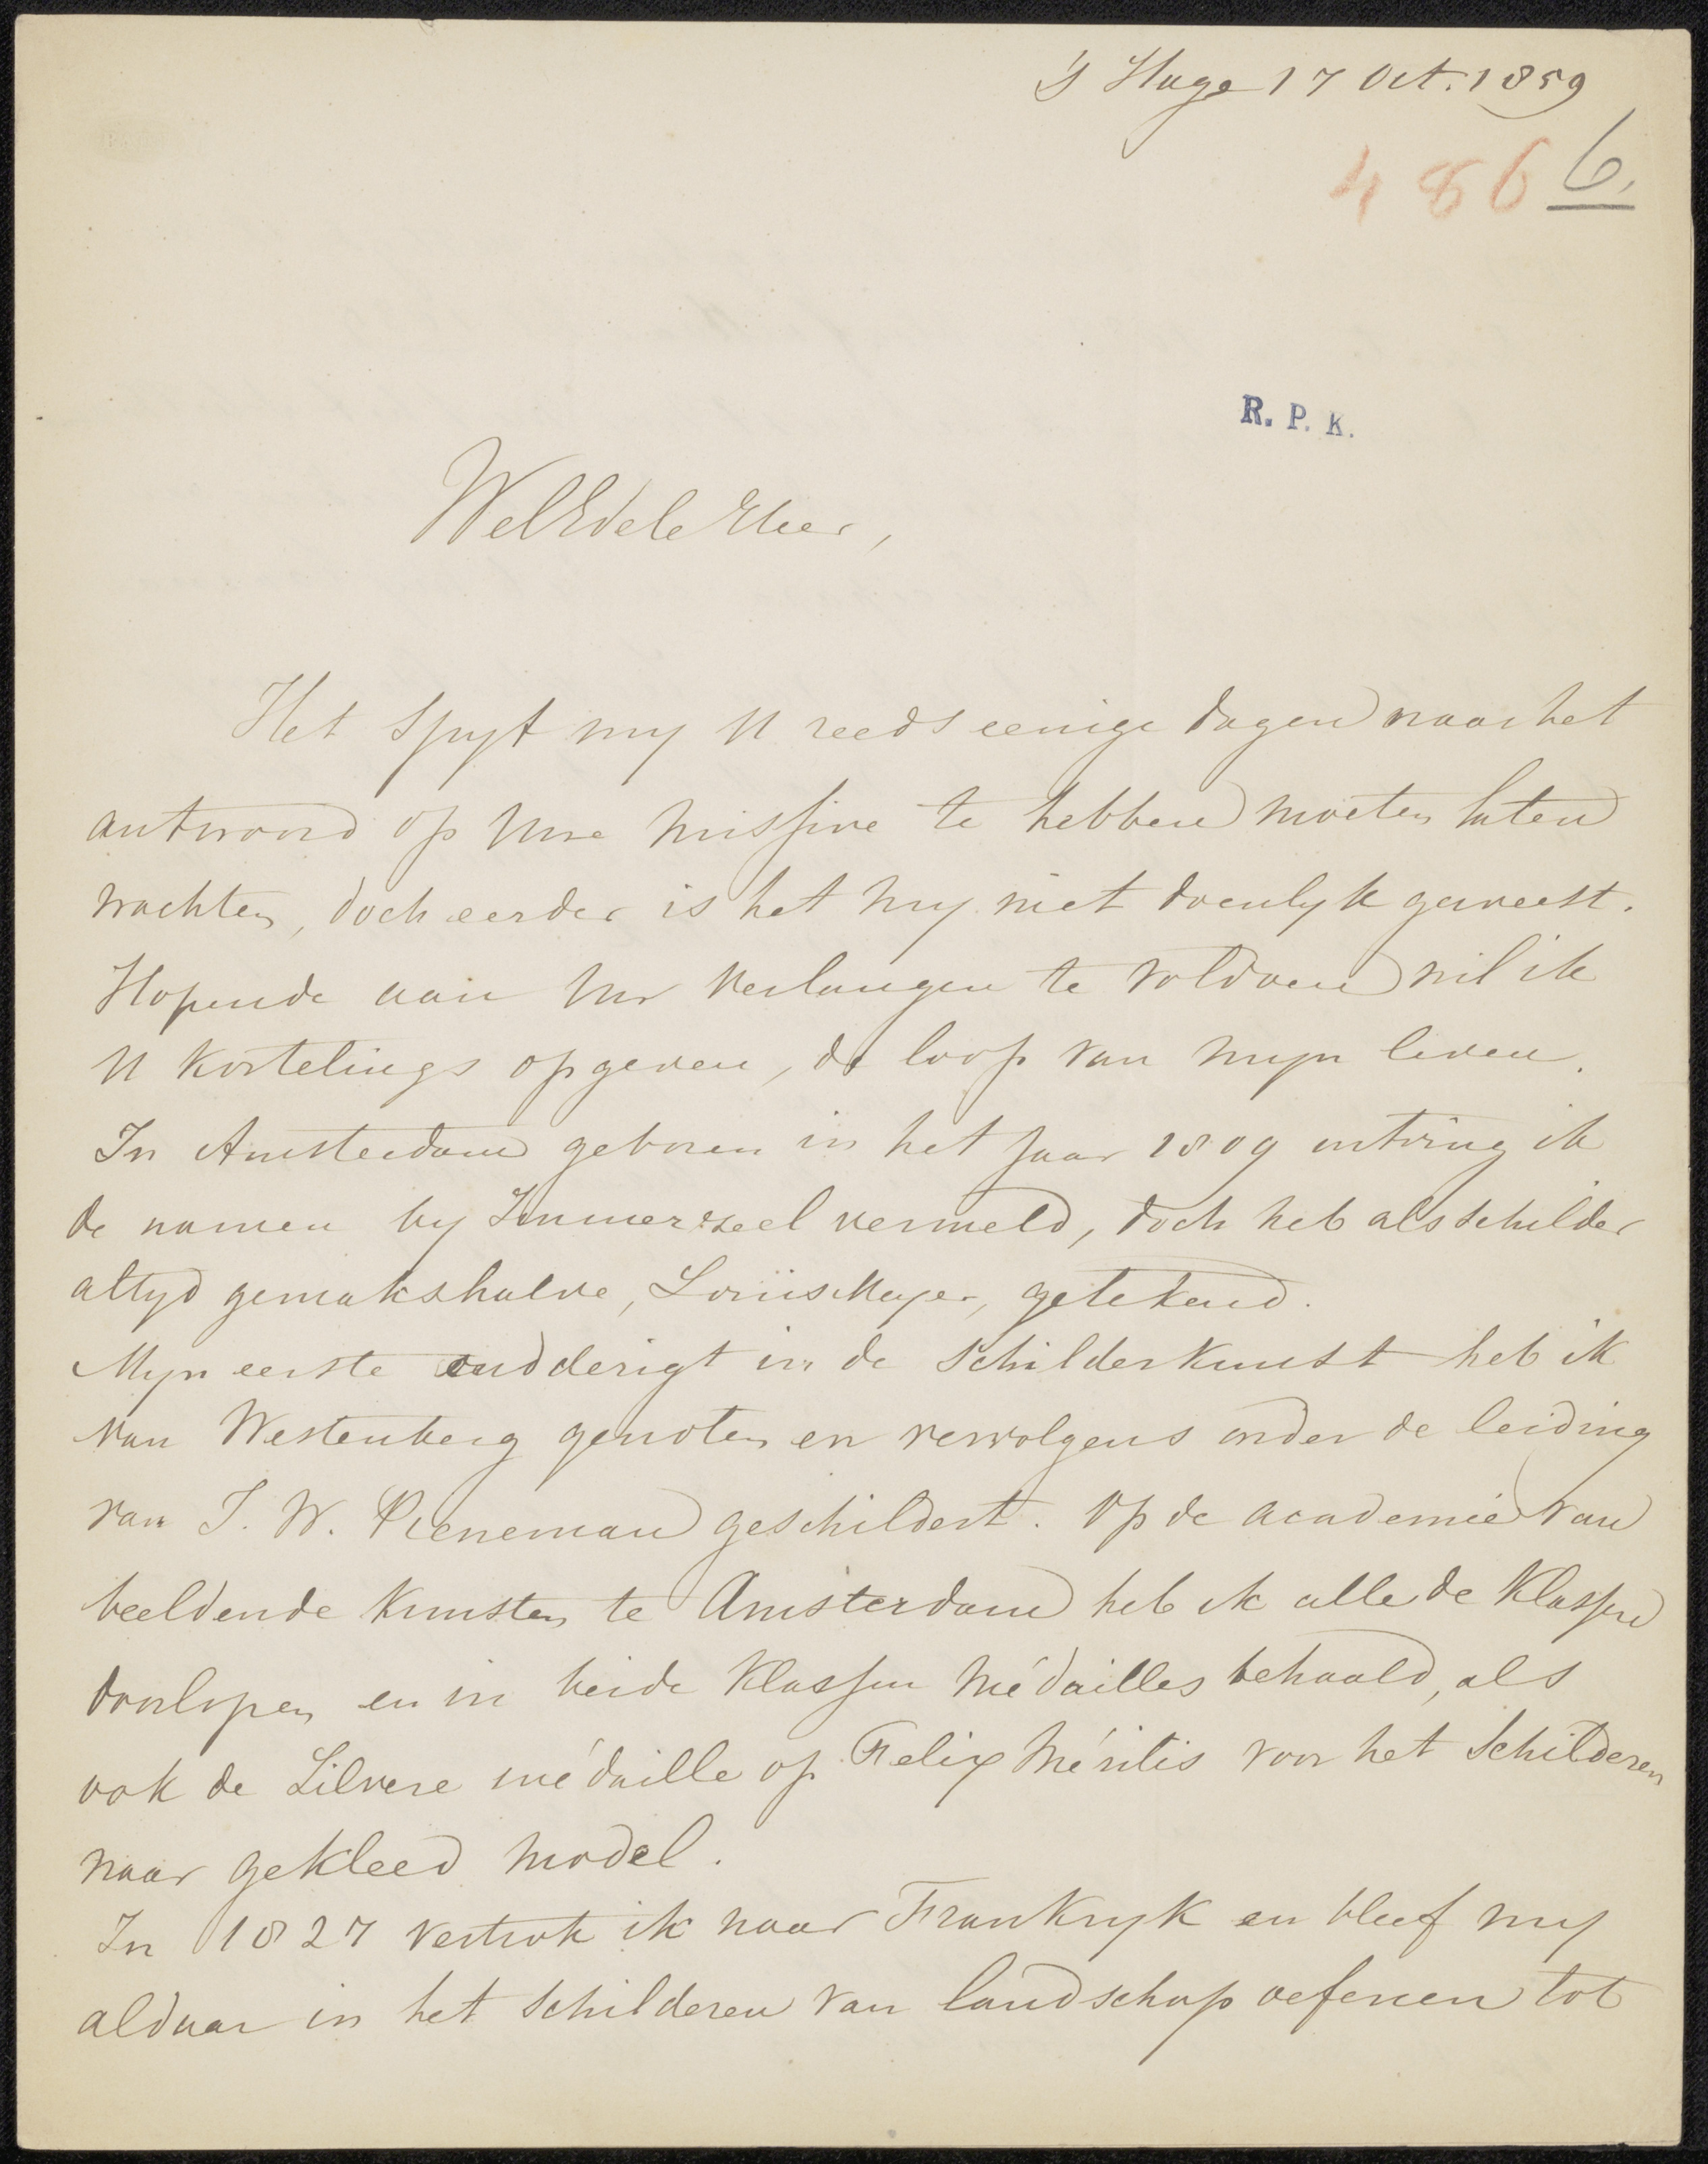 's Hage 17 Oct. 1859
486 6.
R. P. K.
WelEdele Heer,
Het spyt my U reeds eenige dagen naar het
antwoord op Uwe missive te hebben moeten laten
wachten, doch eerder is het my niet doenlyk geweest.
Hopende aan Uw verlangen te voldoen wil ik
U kortelings opgeven, de loop van myn leven.
In Amsterdam geboren in het jaar 1809 ontving ik
de namen by Immerzeel vermeld, doch heb als schilder
altyd gemakshalve, Louis Meyer, getekend.
Myn eerste ondderigt in de schilderkunst heb ik
van Westenberg genoten en vervolgens onder de leiding
van J. W. Pieneman geschildert. Op de academie van
beeldende kunsten te Amsterdam heb ik alle de klassen
doorlopen en in beide klassen médailles behaald, als
ook de Zilvere médaille op Felix Méritis voor het Schilderen
naar gekleed model.
In 1827 vertrok ik naar Frankryk en bleef my
aldaar in het schilderen van landschap oefenen tot